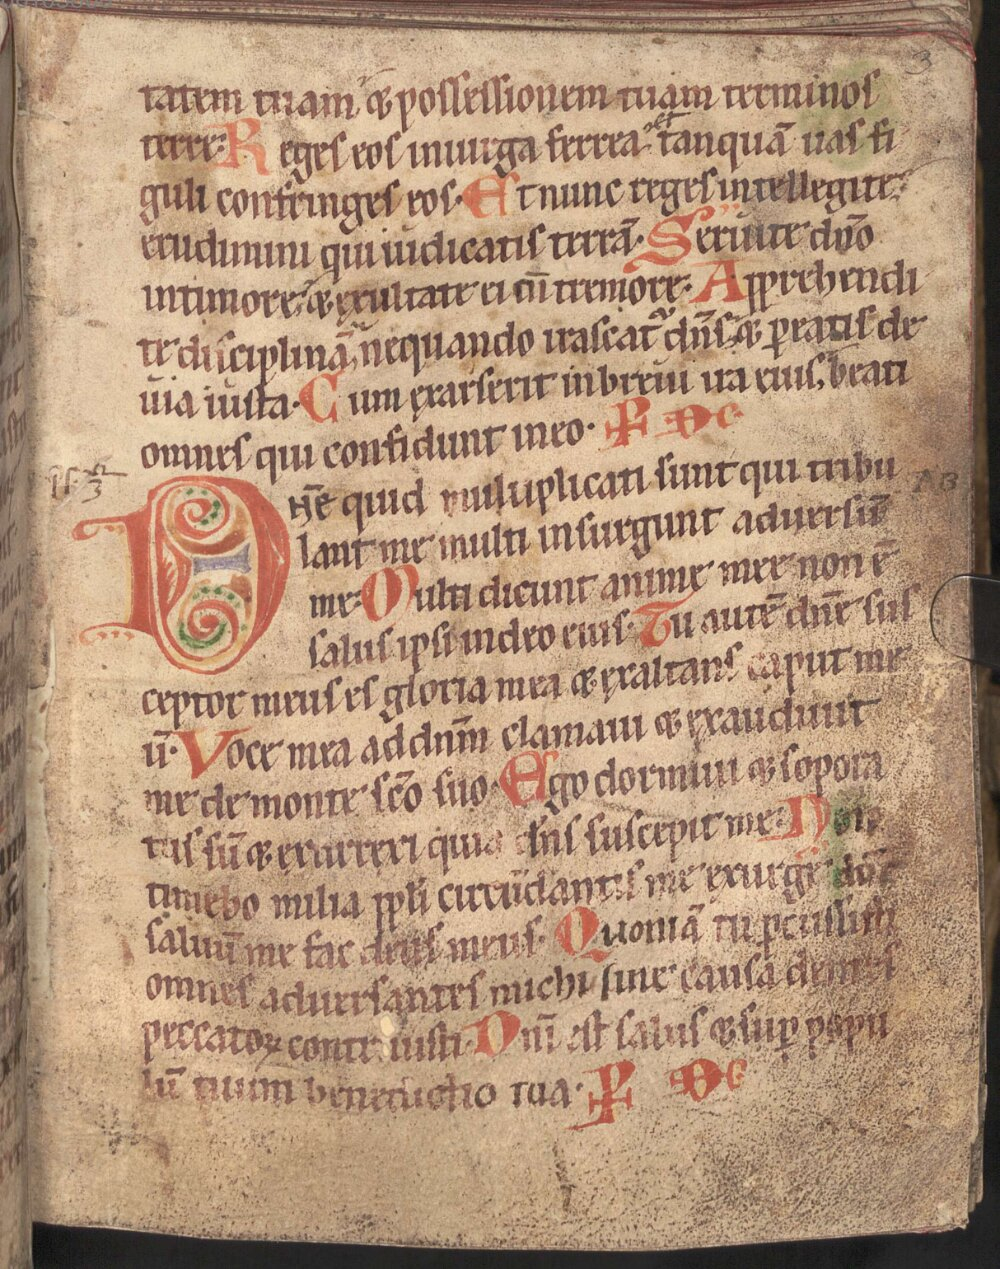 3
tatem tuam & possessionem tuam terminos
terre. Reges eos inuirga ferrea & tanquā uas fi
guli confringes eos. Et nunc reges intellegite.
erudimini qui iudicatis terrā. Seruite dn̄o
intimore. & exultate ei cū tremore. Apprehendi
te disciplinā nequando irascat᷑ dn̄s & peatis de
uia iusta. Cum exarserit inbreui ira eius, beati
omnes qui confidunt ineo.
Dn̄e quid multiplicati sunt qui tribu
lant me multi insurgunt aduersū
me. Multi dicunt anime mee non ē
salus ipsi indeo eius. Tu autē dn̄e sus
ceptor meus es gloria mea & exaltans caput me
ū. Voce mea addnm̄ clamaui & exaudiuit
me de monte sc̄o suo. Ego dormiui & sopora
tus sū & exurrexi quia dn̄s suscepit me. Non
timebo milia ppli circūdantis me exurge dn̄e
saluū me fac deus meus. Quoniā tu pcussisti
omnes aduersantes michi sine causa dentes
peccatoꝝ contriuisti. Dn̄i est salus & sup popu
lū tuum benedictio tua.